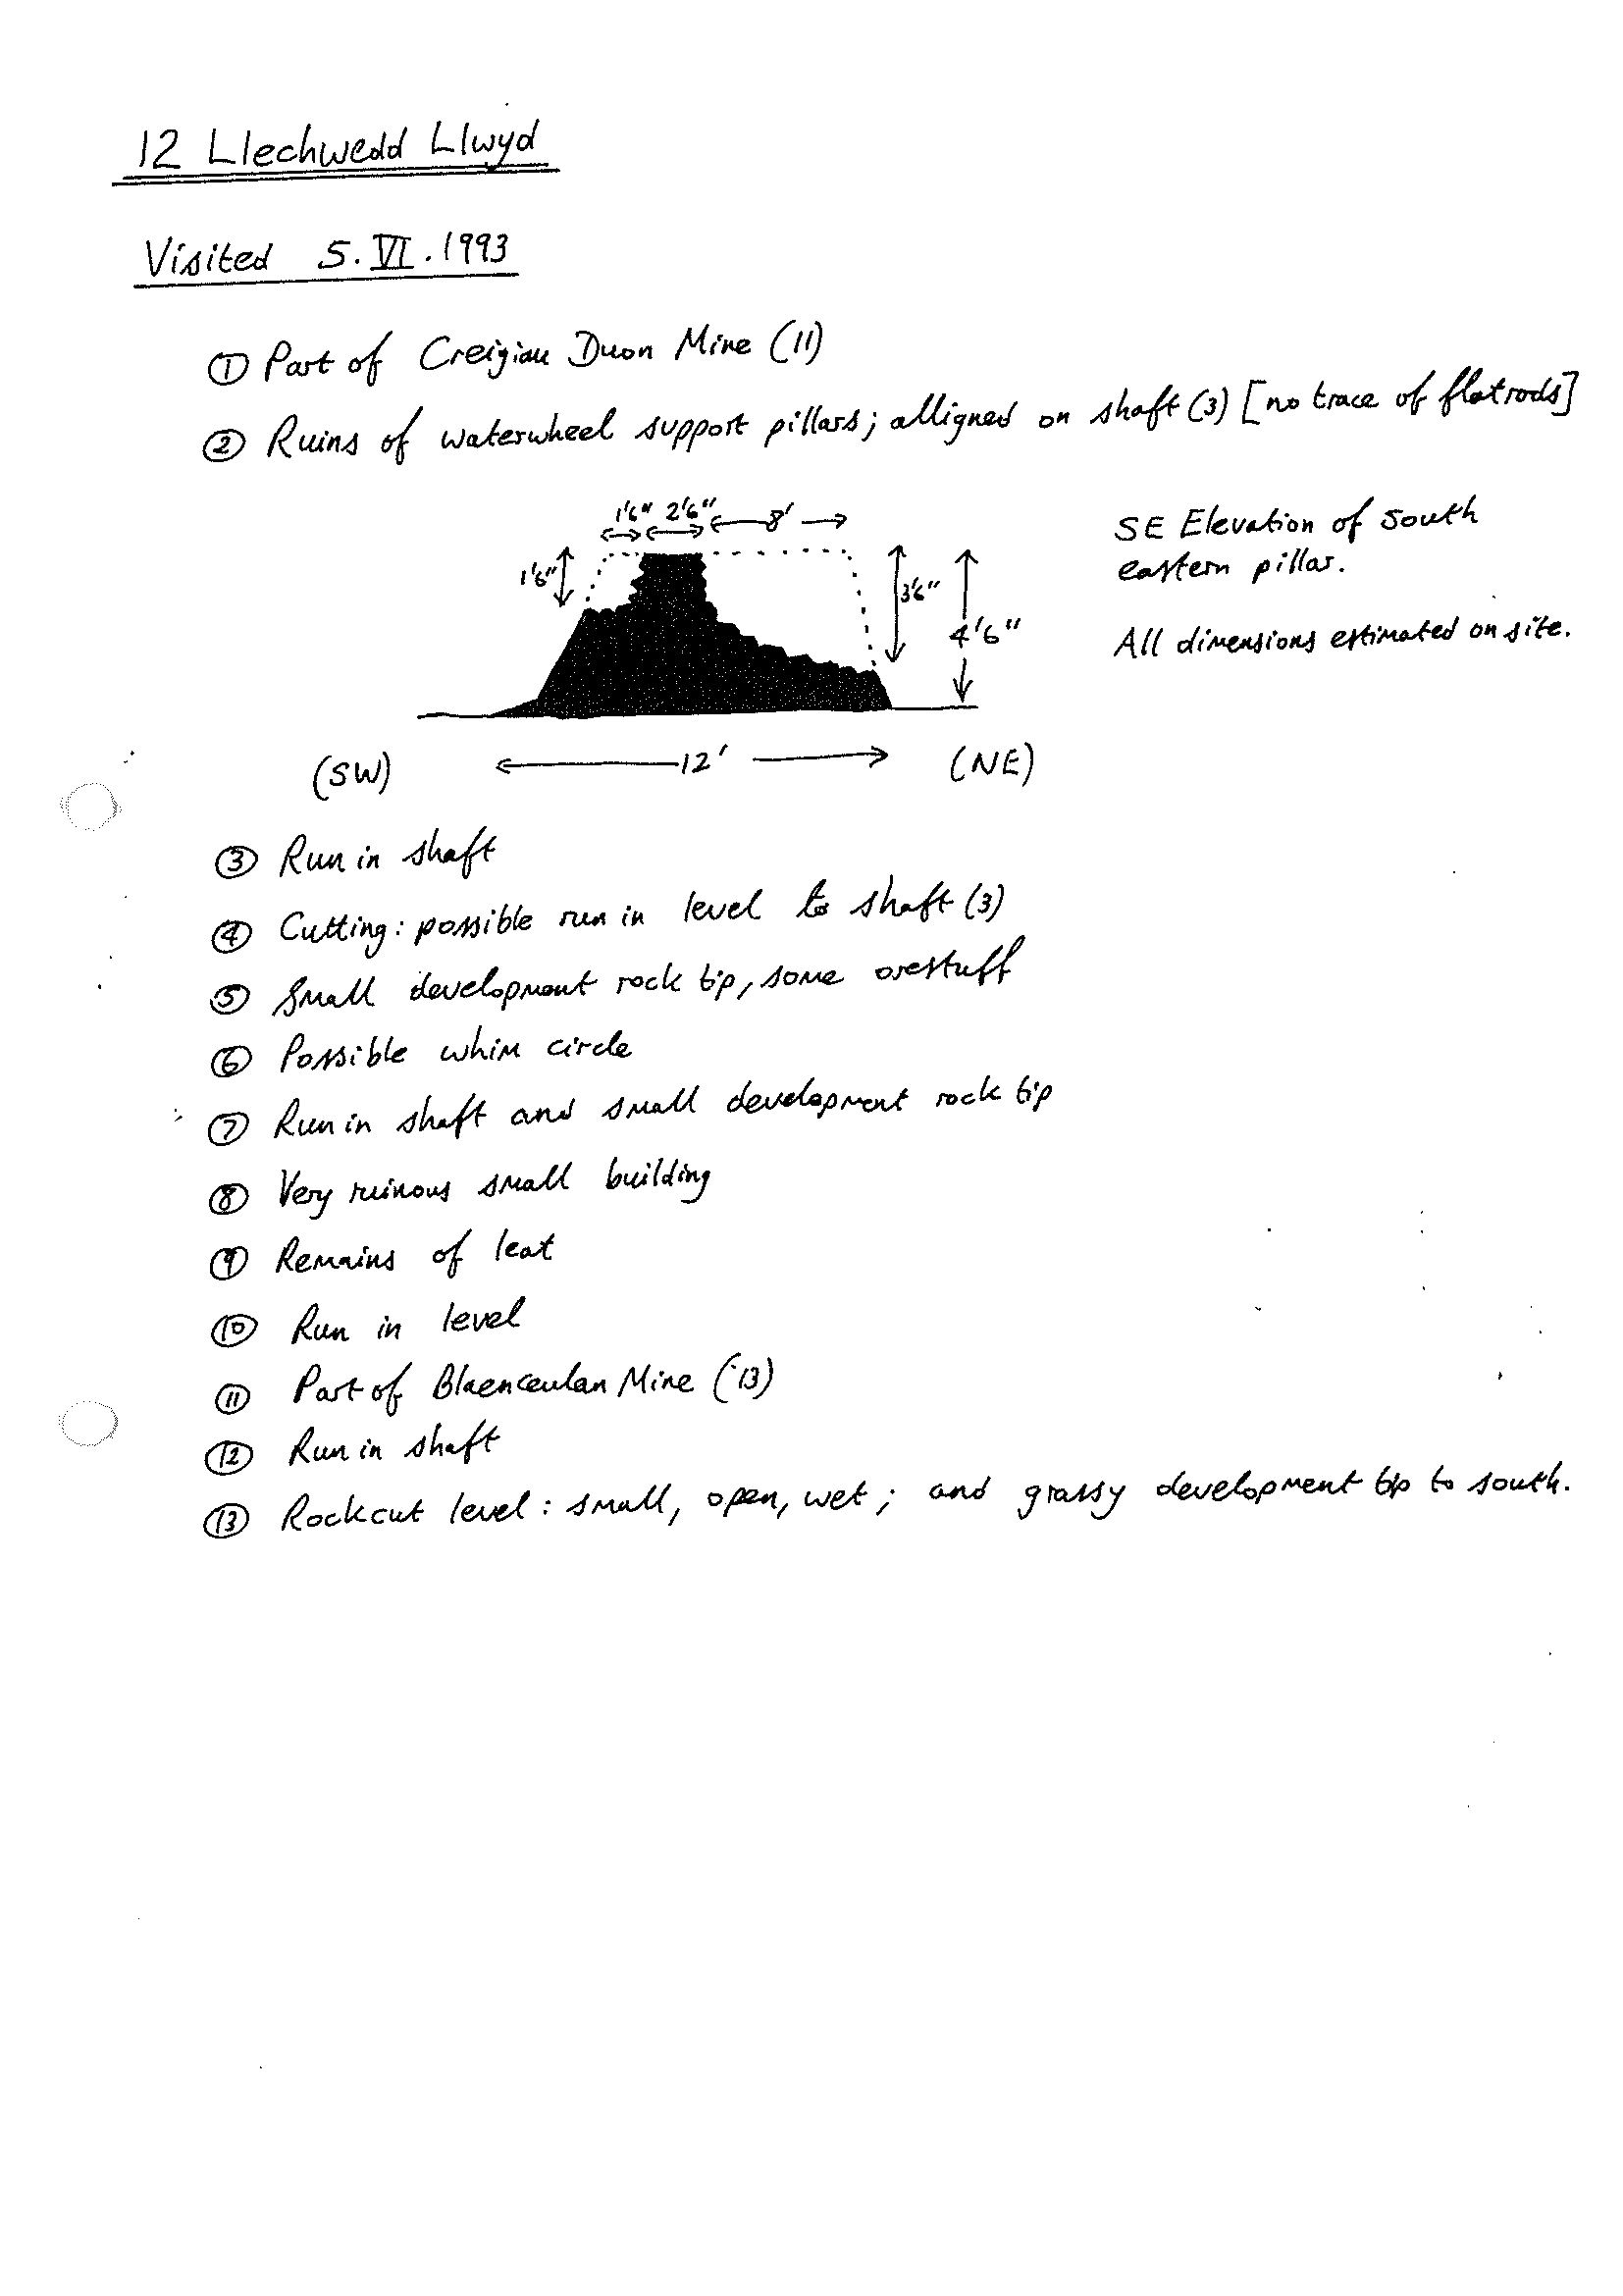 12 Llechwedd Llwyd
Visited 5.VI.1993
① Part of Creigiau Duon Mine (11)
② Ruins of waterwheel support pillars; alligned on shaft (3) [no trace of flatrods]
1'6" 2'6" 8'
1'6"
3'6"
4'6"
SE Elevation of south
eastern pillar.
All dimensions estimated on site.
(SW) 12' (NE)
③ Run in shaft
④ Cutting: possible run in level to shaft (3)
⑤ Small development rock tip, some orestuff
⑥ Possible whim circle
⑦ Run in shaft and small development rock tip
⑧ Very ruinous small building
⑨ Remains of leat
⑩ Run in level
⑪ Part of Blaenceulan Mine (13)
⑫ Run in shaft
⑬ Rockcut level: small, open, wet; and grassy development tip to south.